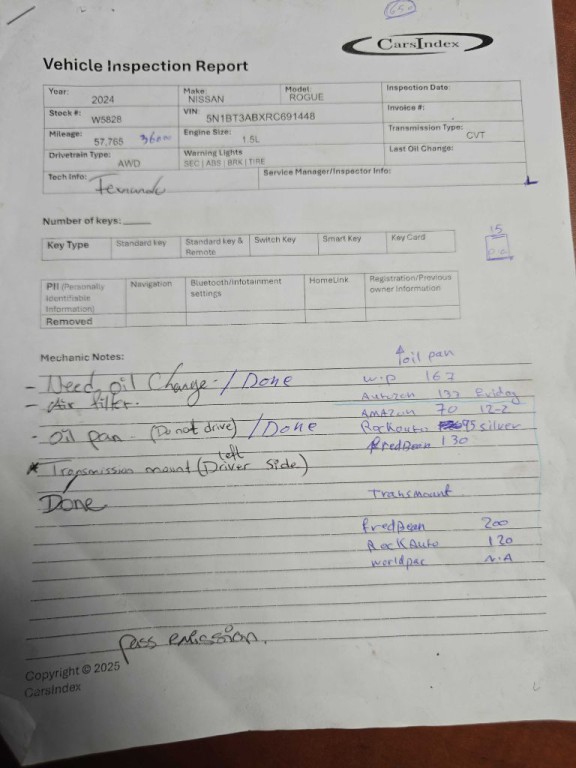 650
CarsIndex
Vehicle Inspection Report
Year: 2024 Make: NISSAN Model: ROGUE Inspection Date:
Stock #: W5828 VIN: 5N1BT3ABXRC691448 Invoice #:
Mileage: 57,765 36000 Engine Size: 1.5L Transmission Type: CVT
Drivetrain Type: AWD Warning Lights SEC | ABS | BRK | TIRE Last Oil Change:
Tech Info: Fernando Service Manager/Inspector Info:
Number of keys:
15
Key Type Standard key Standard key & Remote Switch Key Smart Key Key Card
PII (Personally Identifiable Information) Navigation Bluetooth/Infotainment settings HomeLink Registration/Previous owner Information
Removed
Mechanic Notes:
oil pan
- Need oil Change - / Done
w.p 167
- Air filter.
Autozon Friday
AMAZON 70 12-2
- Oil pan - (Do not drive) / Done
RockAuto 95 silver
FredBean 130
* Transmission mount (left Driver Side)
Transmount
Done
FredBean 200
RockAuto 120
worldpac N.A
pass emission.
Copyright © 2025
CarsIndex